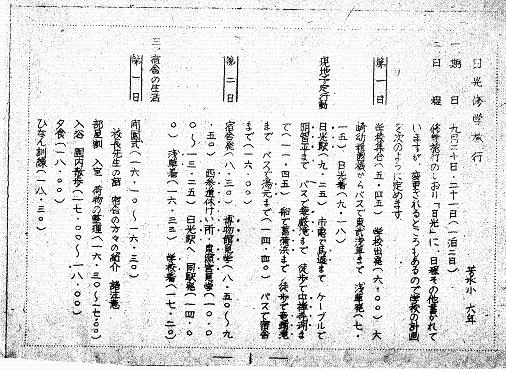 日光修学旅行
芳水小 六年
一 期 日 九月二十日、二十一日(一泊二日)
二 日 程 修学旅行のしおり「日光」に、日程その他書かれて
いますが変更されるところもあるので学校の計画
を次のように定めます
第一日 学校集合(五・四五) 学校出発(六・〇〇) 大
崎 からバスで東武浅草まで 浅草発(七・
一五) 日光着(九・一八)
現地予定行動 日光駅(九・二五) 市電で馬返まで ケーブルで
明智平まで バスで華厳滝まで 徒歩で中禅寺湖ま
で(一一・四五) 船で菖蒲浜まで 徒歩で竜頭滝
まで バスで湯元まで(一四・四〇) バスで宿舎
まで(一六・〇〇)
第二日 宿舎発(八・三〇) 博物館見学(八・五〇〜九
・五〇) 東照宮見学(一〇・〇
〇〜一三・二五) 日光駅へ 同駅発(一四・〇
〇) 浅草着(一六・三三) 学校着(一七・二〇)
三 宿舎の生活
第一日 (一六・一〇〜一六・三〇)
校長先生の話 宿舎の方々の紹介 諸注意
部屋割 入室 荷物の整理(一六・三〇〜一七・〇〇)
入浴 園内散歩(一七・〇〇〜一八・〇〇)
夕食(一八・〇〇)
ひなん訓練(一八・三〇)
— 1 —